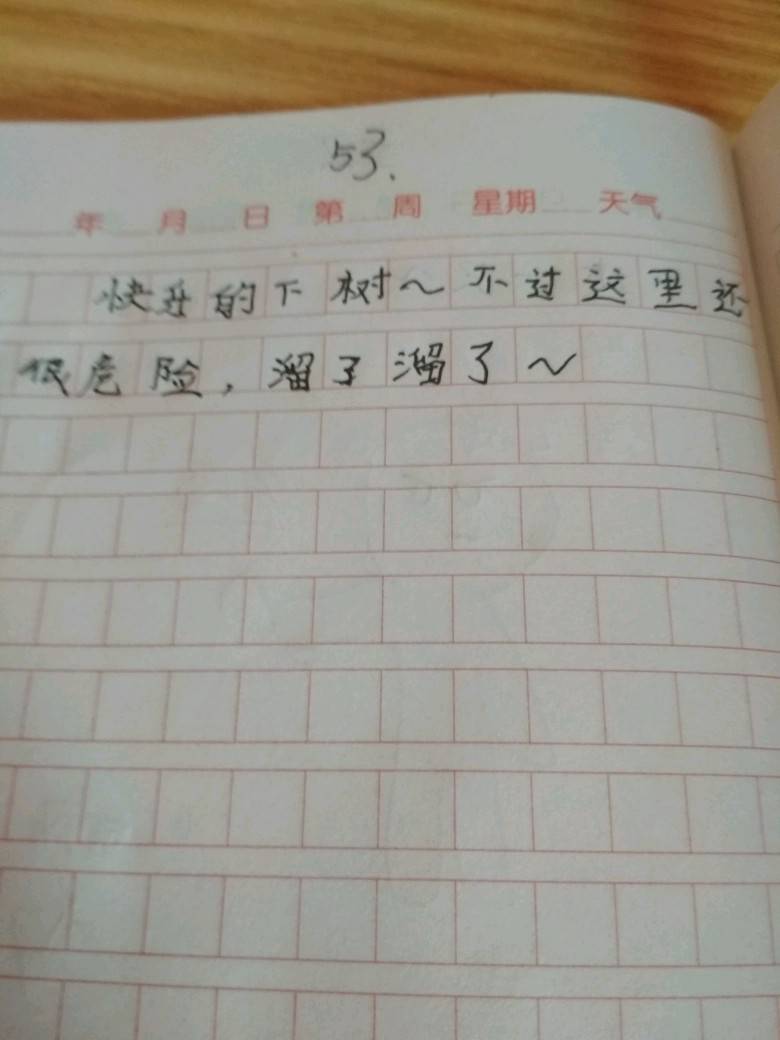 53.
年 月 日 第 周 星期 天气
快速的下树～不过这里还
很危险，溜了溜了～